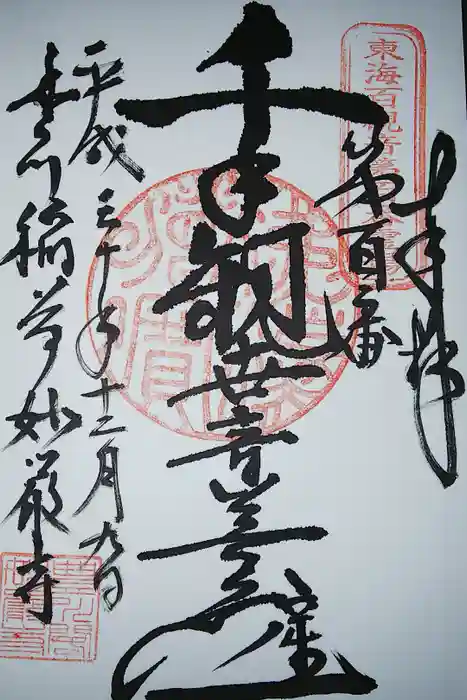 奉拝
第百番
千手観世音菩薩
平成三十年十二月九日
豊川稲荷妙厳寺